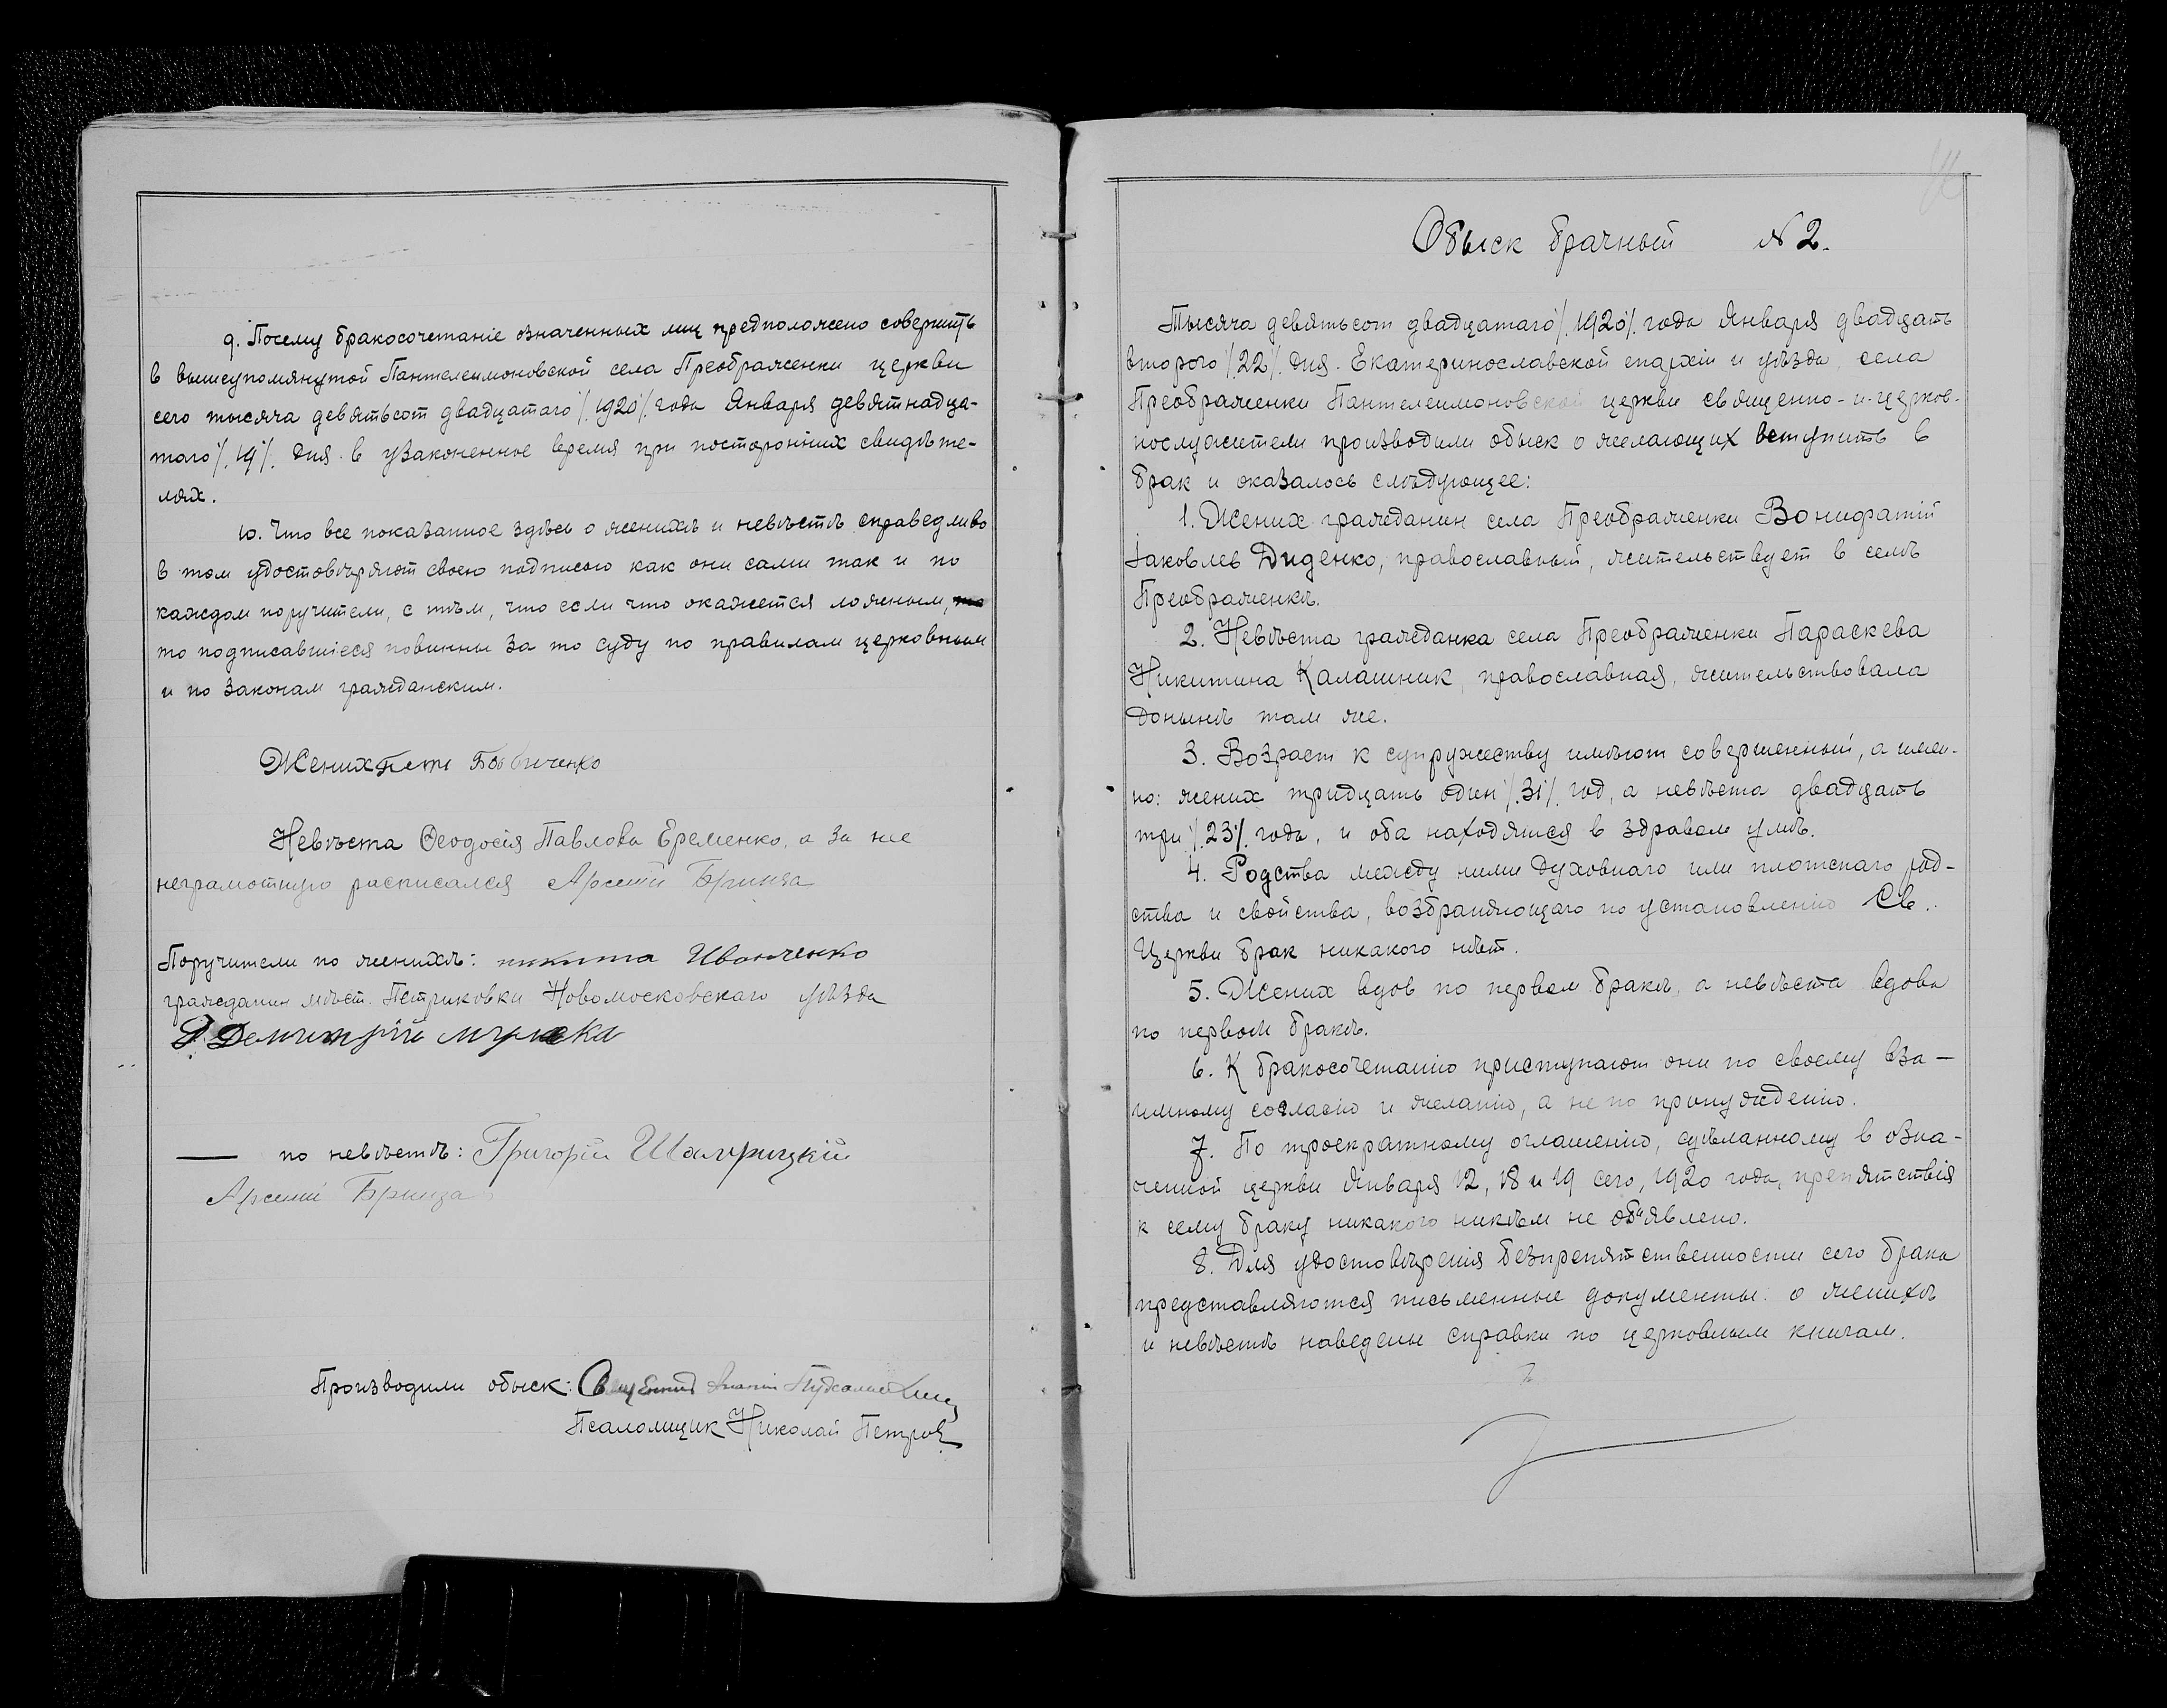 9. Посему бракосочетаніе означенных лиц предположено совершить
в вышеупомянутой Пантелеимоновской села Преображенки церкви
сего тысяча девятьсот двадцатаго /.1920/. года Января девятнадца-
таго /.19/. дня в узаконенное время при посторонних свидѣте-
лях.
10. Что все показанное здѣсь о женихѣ и невѣстѣ справедливо
в том удостовѣряют своею подписью как они сами так и по
каждом поручители, с тѣм, что если что окажется ложным,
то подписавшіеся повинны за то суду по правилам церковным
и по законам гражданским.
Жених
Невѣста Феодосія Павлова Еременко, а за нее
неграмотную расписался Арсений Бринза
Поручители по женихѣ: никита Иванченко
гражданин мѣст. Петриковки Новомосковскаго уѣзда
Демитрій
— по невѣстѣ: Григорій
Арсений Бринза
Производили обыск:
Псаломщик Николай Петров
Обыск брачный № 2.
Тысяча девятьсот двадцатаго /.1920/. года Января двадцать
второго /.22/. дня. Екатеринославской епархіи и уѣзда, села
Преображенки Пантелеимоновской церкви священно-и-церков-
нослужители производили обыск о желающих вступить в
брак и оказалось слѣдующее:
1. Жених гражданин села Преображенки Вонифатій
Іаковлев Диденко, православный, жительствует в селѣ
Преображенкѣ.
2. Невѣста гражданка села Преображенки Параскева
Никитина Калашник, православная, жительствовала
донынѣ там же.
3. Возраст к супружеству имѣют совершенный, а имен-
но: жених тридцать один /.31/. год, а невѣста двадцать
три /.23/. года, и оба находятся в здравом умѣ.
4. Родства между ними духовнаго или плотскаго род-
ства и свойства, возбраняющаго по установленію Св.
Церкви брак никакого нѣт.
5. Жених вдов по первом бракѣ, а невѣста вдова
по первом бракѣ.
6. К бракосочетанію приступают они по своему вза-
имному согласію и желанію, а не по принужденію.
7. По троекратному оглашенію, сдѣланному в озна-
ченной церкви Января 12, 18 и 19 сего, 1920 года, препятствія
к сему браку никакого никѣм не об"явлено.
8. Для удостовѣренія безпрепятственности сего брака
представляются письменные документы: о женихѣ
и невѣстѣ наведены справки по церковным книгам.